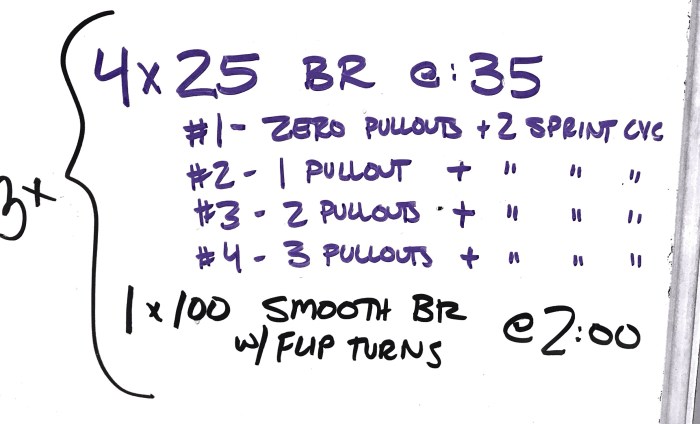 3x
4 x 25 BR @ :35
#1 - ZERO PULLOUTS + 2 SPRINT CYC
#2 - 1 PULLOUT + " " "
#3 - 2 PULLOUTS + " " "
#4 - 3 PULLOUTS + " " "
1 x 100 SMOOTH BR @ 2:00
w/ FLIP TURNS